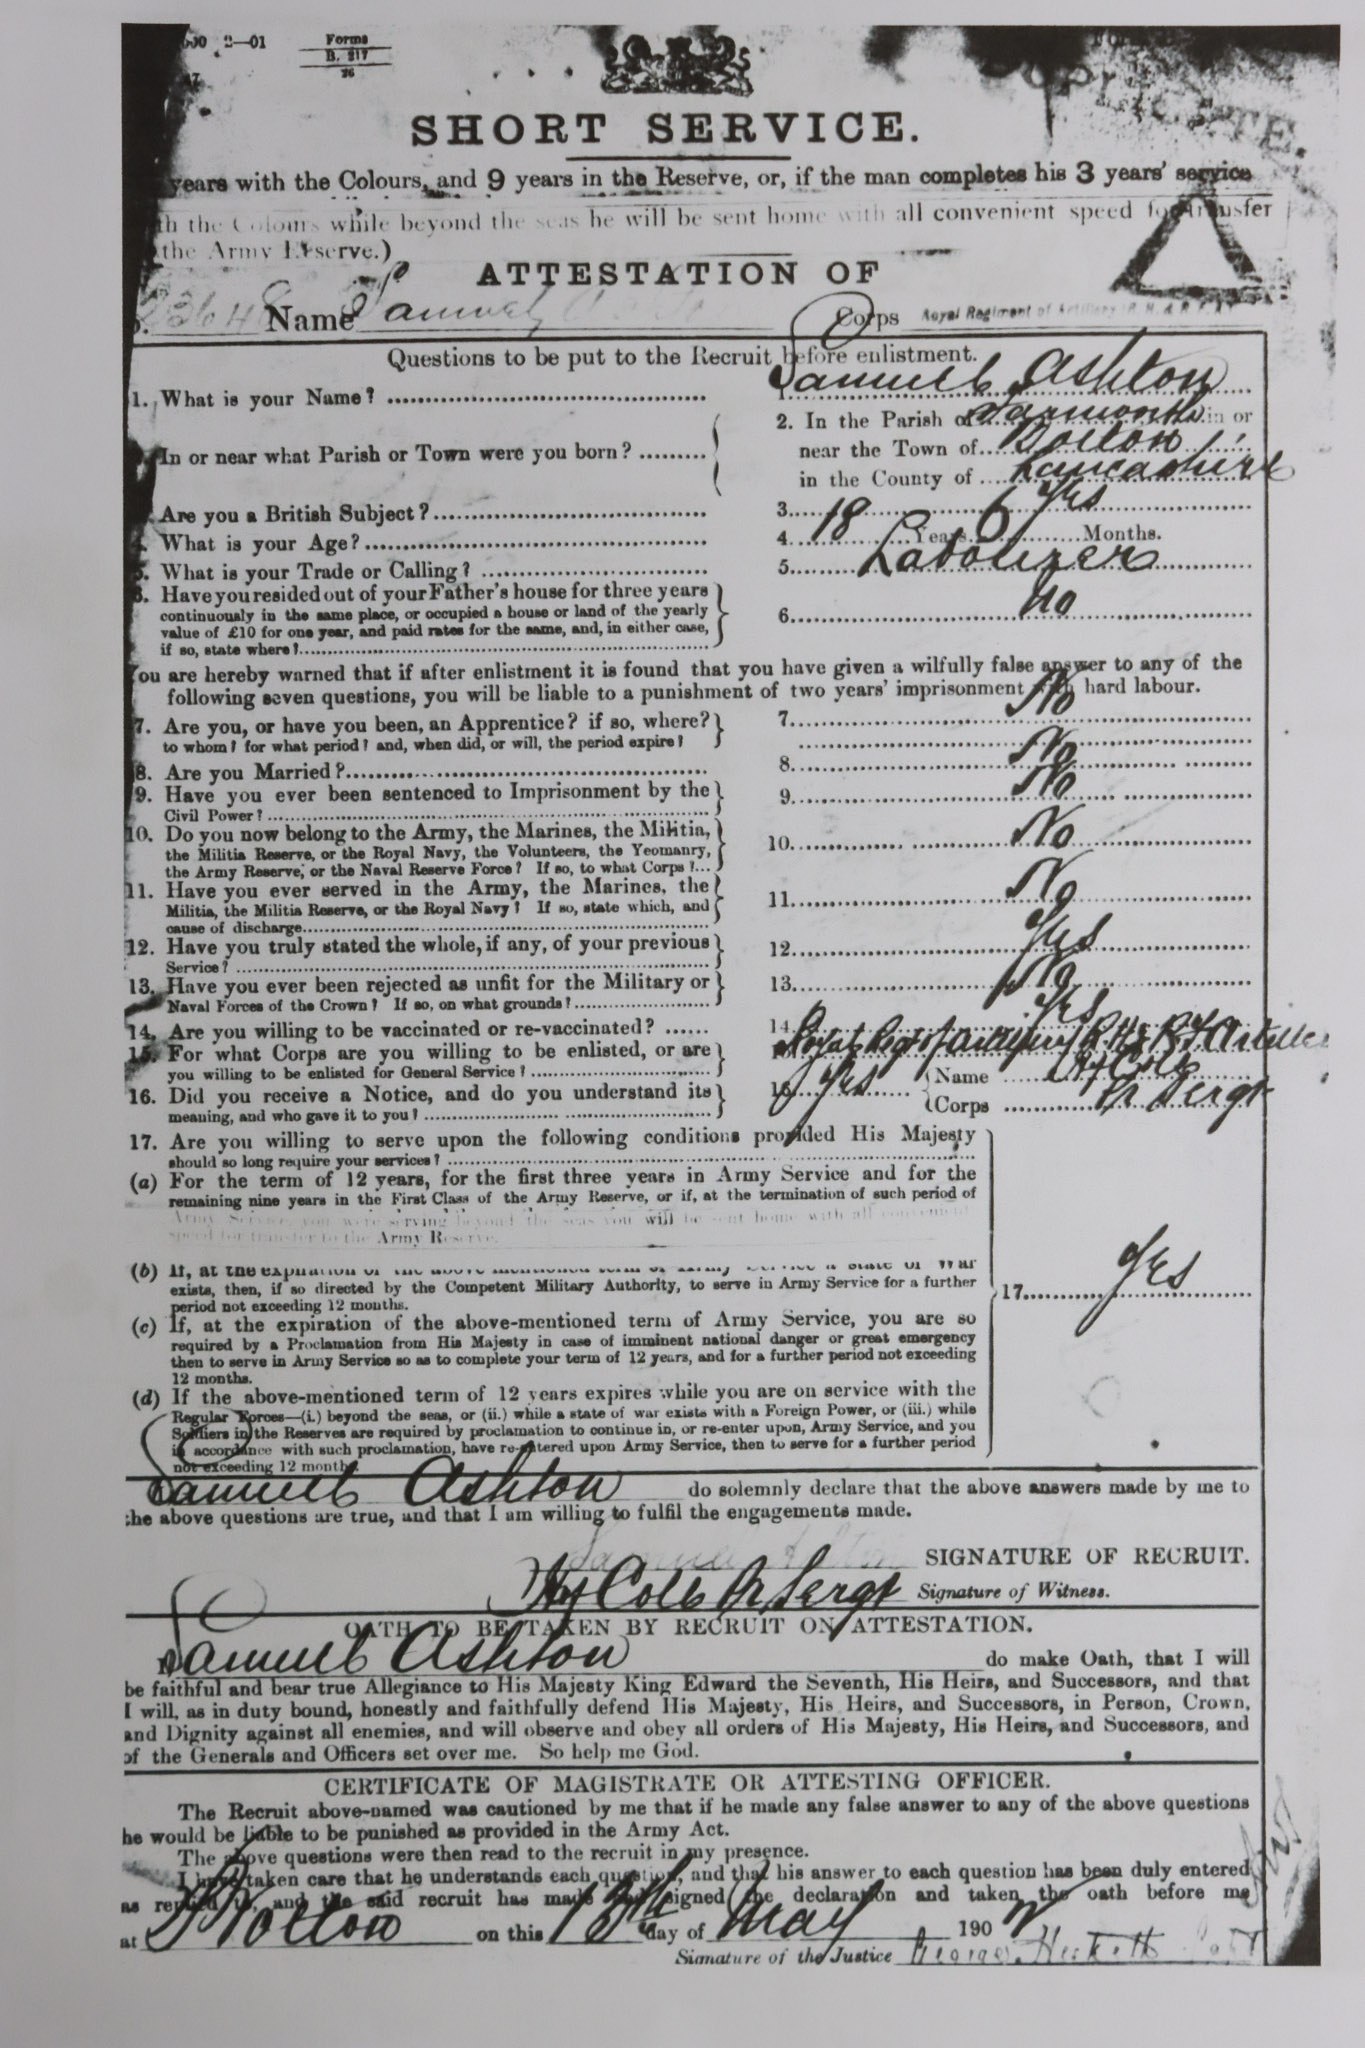 2—01
Forms
B. 217
26
SHORT SERVICE.
years with the Colours, and 9 years in the Reserve, or, if the man completes his 3 years' service
the Colours while beyond the seas he will be sent home with all convenient speed for transfer
the Army Reserve.)
ATTESTATION OF
Name Samuel Corps Royal Regiment of Artillery
Questions to be put to the Recruit before enlistment.
1. What is your Name? 1. Samuel Ashton
In or near what Parish or Town were you born?
2. In the Parish of Farnworth in or
near the Town of Bolton
in the County of Lancashire
Are you a British Subject? 3. Yes
4. What is your Age? 4. 18 Years 6 Months.
5. What is your Trade or Calling? 5. Labourer
6. Have you resided out of your Father's house for three years
continuously in the same place, or occupied a house or land of the yearly
value of £10 for one year, and paid rates for the same, and, in either case,
if so, state where? 6. No
You are hereby warned that if after enlistment it is found that you have given a wilfully false answer to any of the
following seven questions, you will be liable to a punishment of two years' imprisonment with hard labour.
7. Are you, or have you been, an Apprentice? if so, where? 7. No
to whom? for what period? and, when did, or will, the period expire?
8. Are you Married? 8. No
9. Have you ever been sentenced to Imprisonment by the
Civil Power? 9. No
10. Do you now belong to the Army, the Marines, the Militia,
the Militia Reserve, or the Royal Navy, the Volunteers, the Yeomanry,
the Army Reserve, or the Naval Reserve Force? If so, to what Corps? 10. No
11. Have you ever served in the Army, the Marines, the
Militia, the Militia Reserve, or the Royal Navy? If so, state which, and
cause of discharge 11. No
12. Have you truly stated the whole, if any, of your previous
Service? 12. Yes
13. Have you ever been rejected as unfit for the Military or
Naval Forces of the Crown? If so, on what grounds? 13. No
14. Are you willing to be vaccinated or re-vaccinated? 14. Yes
15. For what Corps are you willing to be enlisted, or are
you willing to be enlisted for General Service?
16. Did you receive a Notice, and do you understand its
meaning, and who gave it to you? 16. Yes
Name Hy Cole
Corps Sergt
17. Are you willing to serve upon the following conditions provided His Majesty
should so long require your services?
(a) For the term of 12 years, for the first three years in Army Service and for the
remaining nine years in the First Class of the Army Reserve, or if, at the termination of such period of
Army Service, you were serving beyond the seas you will be sent home with all convenient
speed for transfer to the Army Reserve.
(b) If, at the expiration of the above-mentioned term of Army Service a state of War
exists, then, if so directed by the Competent Military Authority, to serve in Army Service for a further
period not exceeding 12 months.
17. Yes
(c) If, at the expiration of the above-mentioned term of Army Service, you are so
required by a Proclamation from His Majesty in case of imminent national danger or great emergency
then to serve in Army Service so as to complete your term of 12 years, and for a further period not exceeding
12 months.
(d) If the above-mentioned term of 12 years expires while you are on service with the
Regular Forces—(i.) beyond the seas, or (ii.) while a state of war exists with a Foreign Power, or (iii.) while
Soldiers in the Reserves are required by proclamation to continue in, or re-enter upon, Army Service, and you
in accordance with such proclamation, have re-entered upon Army Service, then to serve for a further period
not exceeding 12 months
Samuel Ashton do solemnly declare that the above answers made by me to
the above questions are true, and that I am willing to fulfil the engagements made.
Samuel Ashton SIGNATURE OF RECRUIT.
Hy Cole Sergt Signature of Witness.
OATH TO BE TAKEN BY RECRUIT ON ATTESTATION.
Samuel Ashton do make Oath, that I will
be faithful and bear true Allegiance to His Majesty King Edward the Seventh, His Heirs, and Successors, and that
I will, as in duty bound, honestly and faithfully defend His Majesty, His Heirs, and Successors, in Person, Crown,
and Dignity against all enemies, and will observe and obey all orders of His Majesty, His Heirs, and Successors, and
of the Generals and Officers set over me. So help me God.
CERTIFICATE OF MAGISTRATE OR ATTESTING OFFICER.
The Recruit above-named was cautioned by me that if he made any false answer to any of the above questions
he would be liable to be punished as provided in the Army Act.
The above questions were then read to the recruit in my presence.
I have taken care that he understands each question, and that his answer to each question has been duly entered
as replied to, and the said recruit has made and signed the declaration and taken the oath before me
at Bolton on this 13th day of May 190
Signature of the Justice George